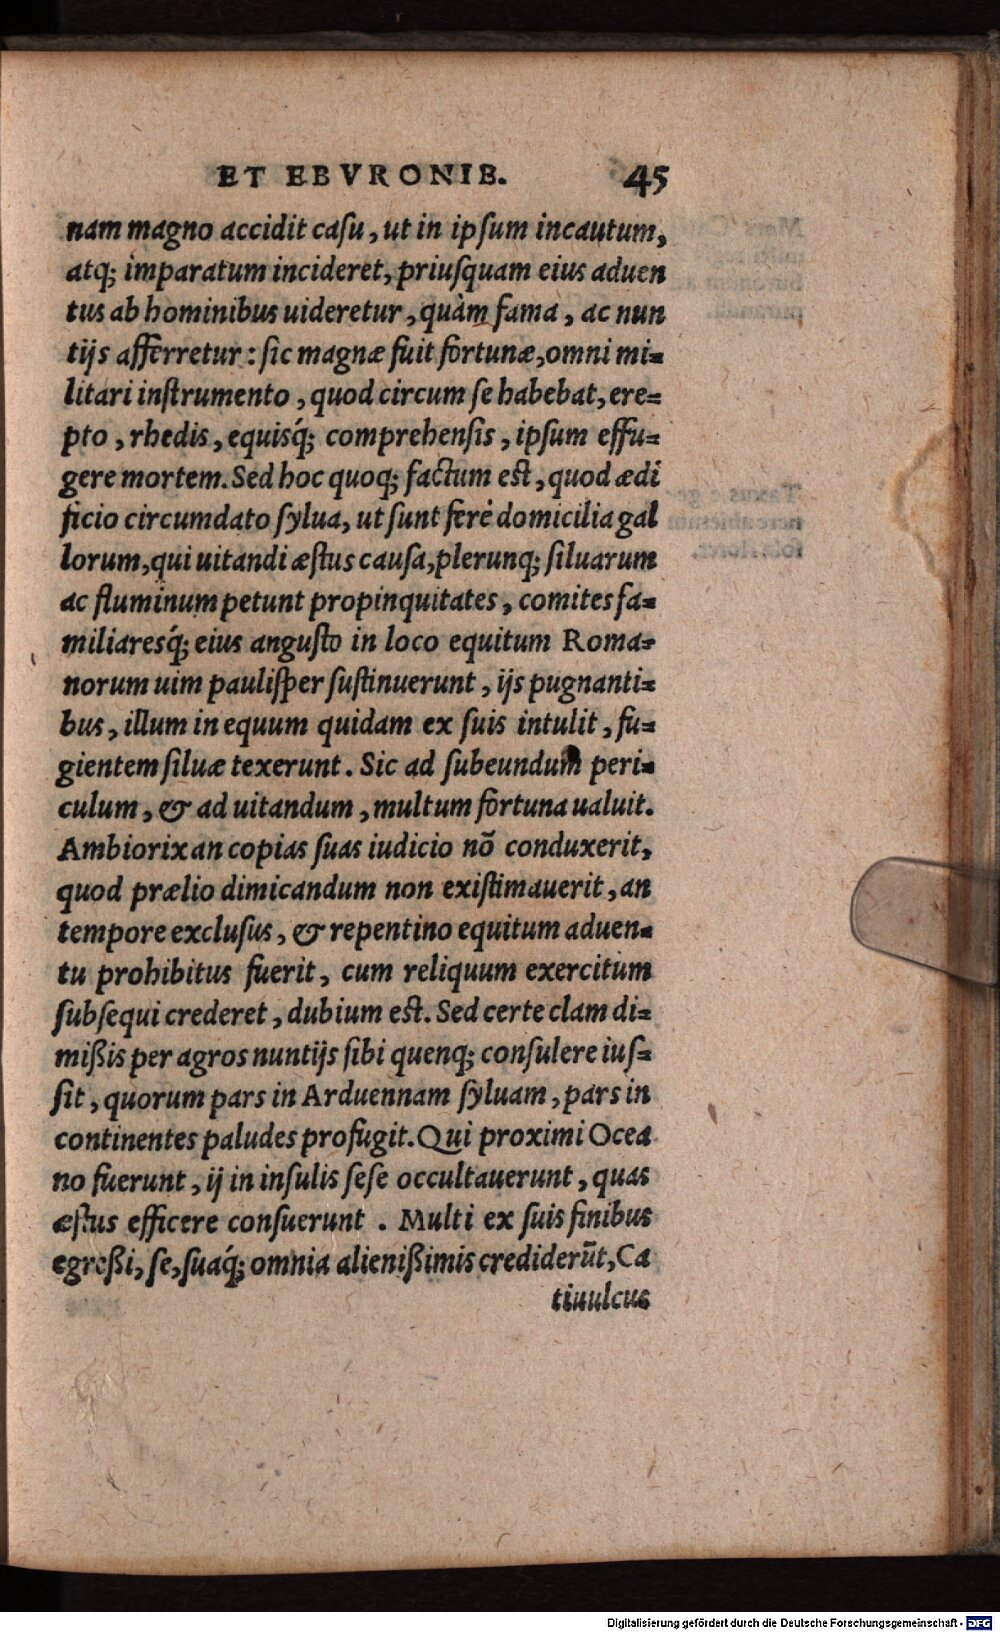 ET EBVRONIB. 45
nam magno accidit casu, ut in ipsum incautum,
atq; imparatum incideret, priusquam eius aduen
tus ab hominibus uideretur, quàm fama, ac nun
tijs afferretur: sic magnæ fuit fortunæ, omni mi-
litari instrumento, quod circum se habebat, ere-
pto, rhedis, equisq́; comprehensis, ipsum effu-
gere mortem. Sed hoc quoq; factum est, quod ædi
ficio circumdato sylua, ut sunt ferè domicilia gal
lorum, qui uitandi æstus causa, plerunq; siluarum
ac fluminum petunt propinquitates, comites fa-
miliaresq́; eius angusto in loco equitum Roma-
norum uim paulisper sustinuerunt, ijs pugnanti-
bus, illum in equum quidam ex suis intulit, fu-
gientem siluæ texerunt. Sic ad subeundum peri-
culum, & ad uitandum, multum fortuna ualuit.
Ambiorix an copias suas iudicio nō conduxerit,
quod prælio dimicandum non existimauerit, an
tempore exclusus, & repentino equitum aduen-
tu prohibitus fuerit, cum reliquum exercitum
subsequi crederet, dubium est. Sed certe clam di-
mißis per agros nuntijs sibi quenq; consulere ius-
sit, quorum pars in Arduennam syluam, pars in
continentes paludes profugit. Qui proximi Ocea
no fuerunt, ij in insulis sese occultauerunt, quas
æstus efficere consuerunt. Multi ex suis finibus
egreßi, se, suaq́; omnia alienißimis crediderūt, Ca
tiuulcus
Digitalisierung gefördert durch die Deutsche Forschungsgemeinschaft - DFG